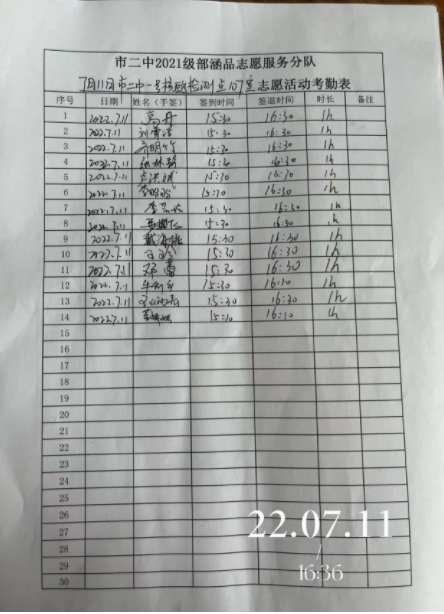 市二中2021级部涵品志愿服务分队
7月11日市二中一号核酸检测点107室志愿活动考勤表
序号 日期 姓名（手签） 签到时间 签退时间 时长 备注
1 2022.7.11 15:30 16:30 1h
2 2022.7.11 15:30 16:30 1h
3 2022.7.11 15:30 16:30 1h
4 2022.7.11 15:30 16:30 1h
5 2022.7.11 15:30 16:30 1h
6 2022.7.11 15:30 16:30 1h
7 2022.7.11 15:30 16:30 1h
8 2022.7.11 15:30 16:30 1h
9 2022.7.11 15:30 16:30 1h
10 2022.7.11 15:30 16:30 1h
11 2022.7.11 15:30 16:30 1h
12 2022.7.11 15:30 16:30 1h
13 2022.7.11 15:30 16:30 1h
14 2022.7.11 15:10 16:10 1h
15
16
17
18
19
20
21
22
23
24
25
26
27
28
29
30
22.07.11
/
16:36